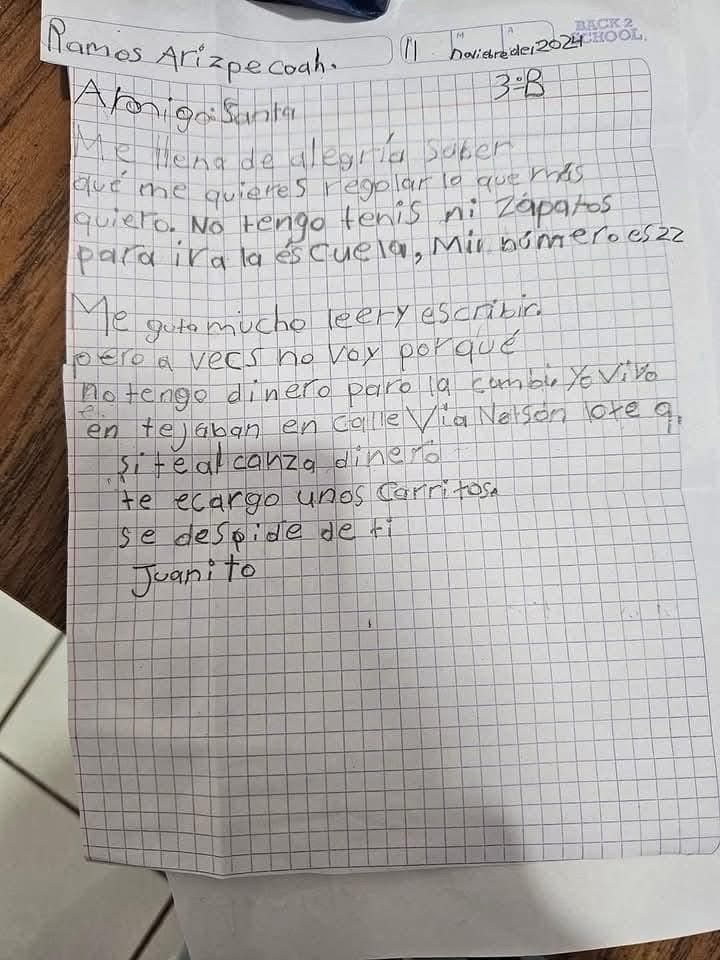 BACK 2
SCHOOL
M A
Ramos Arizpe coah. 11 noviebre del 2024
3=B
Amigo: Santa
Me llena de alegría saber
qué me quieres regalar lo que más
quiero. No tengo tenis ni zapatos
para ir a la éscuela, Mi número es 22
Me guta mucho leer y escribir.
pero a vecs no voy porqué
no tengo dinero para la combi, Yo Vivo
en tejaban en calle Via Nelsón lote 9.
si te alcanza dinero
te ecargo unos Carritos.
se despide de ti
Juanito